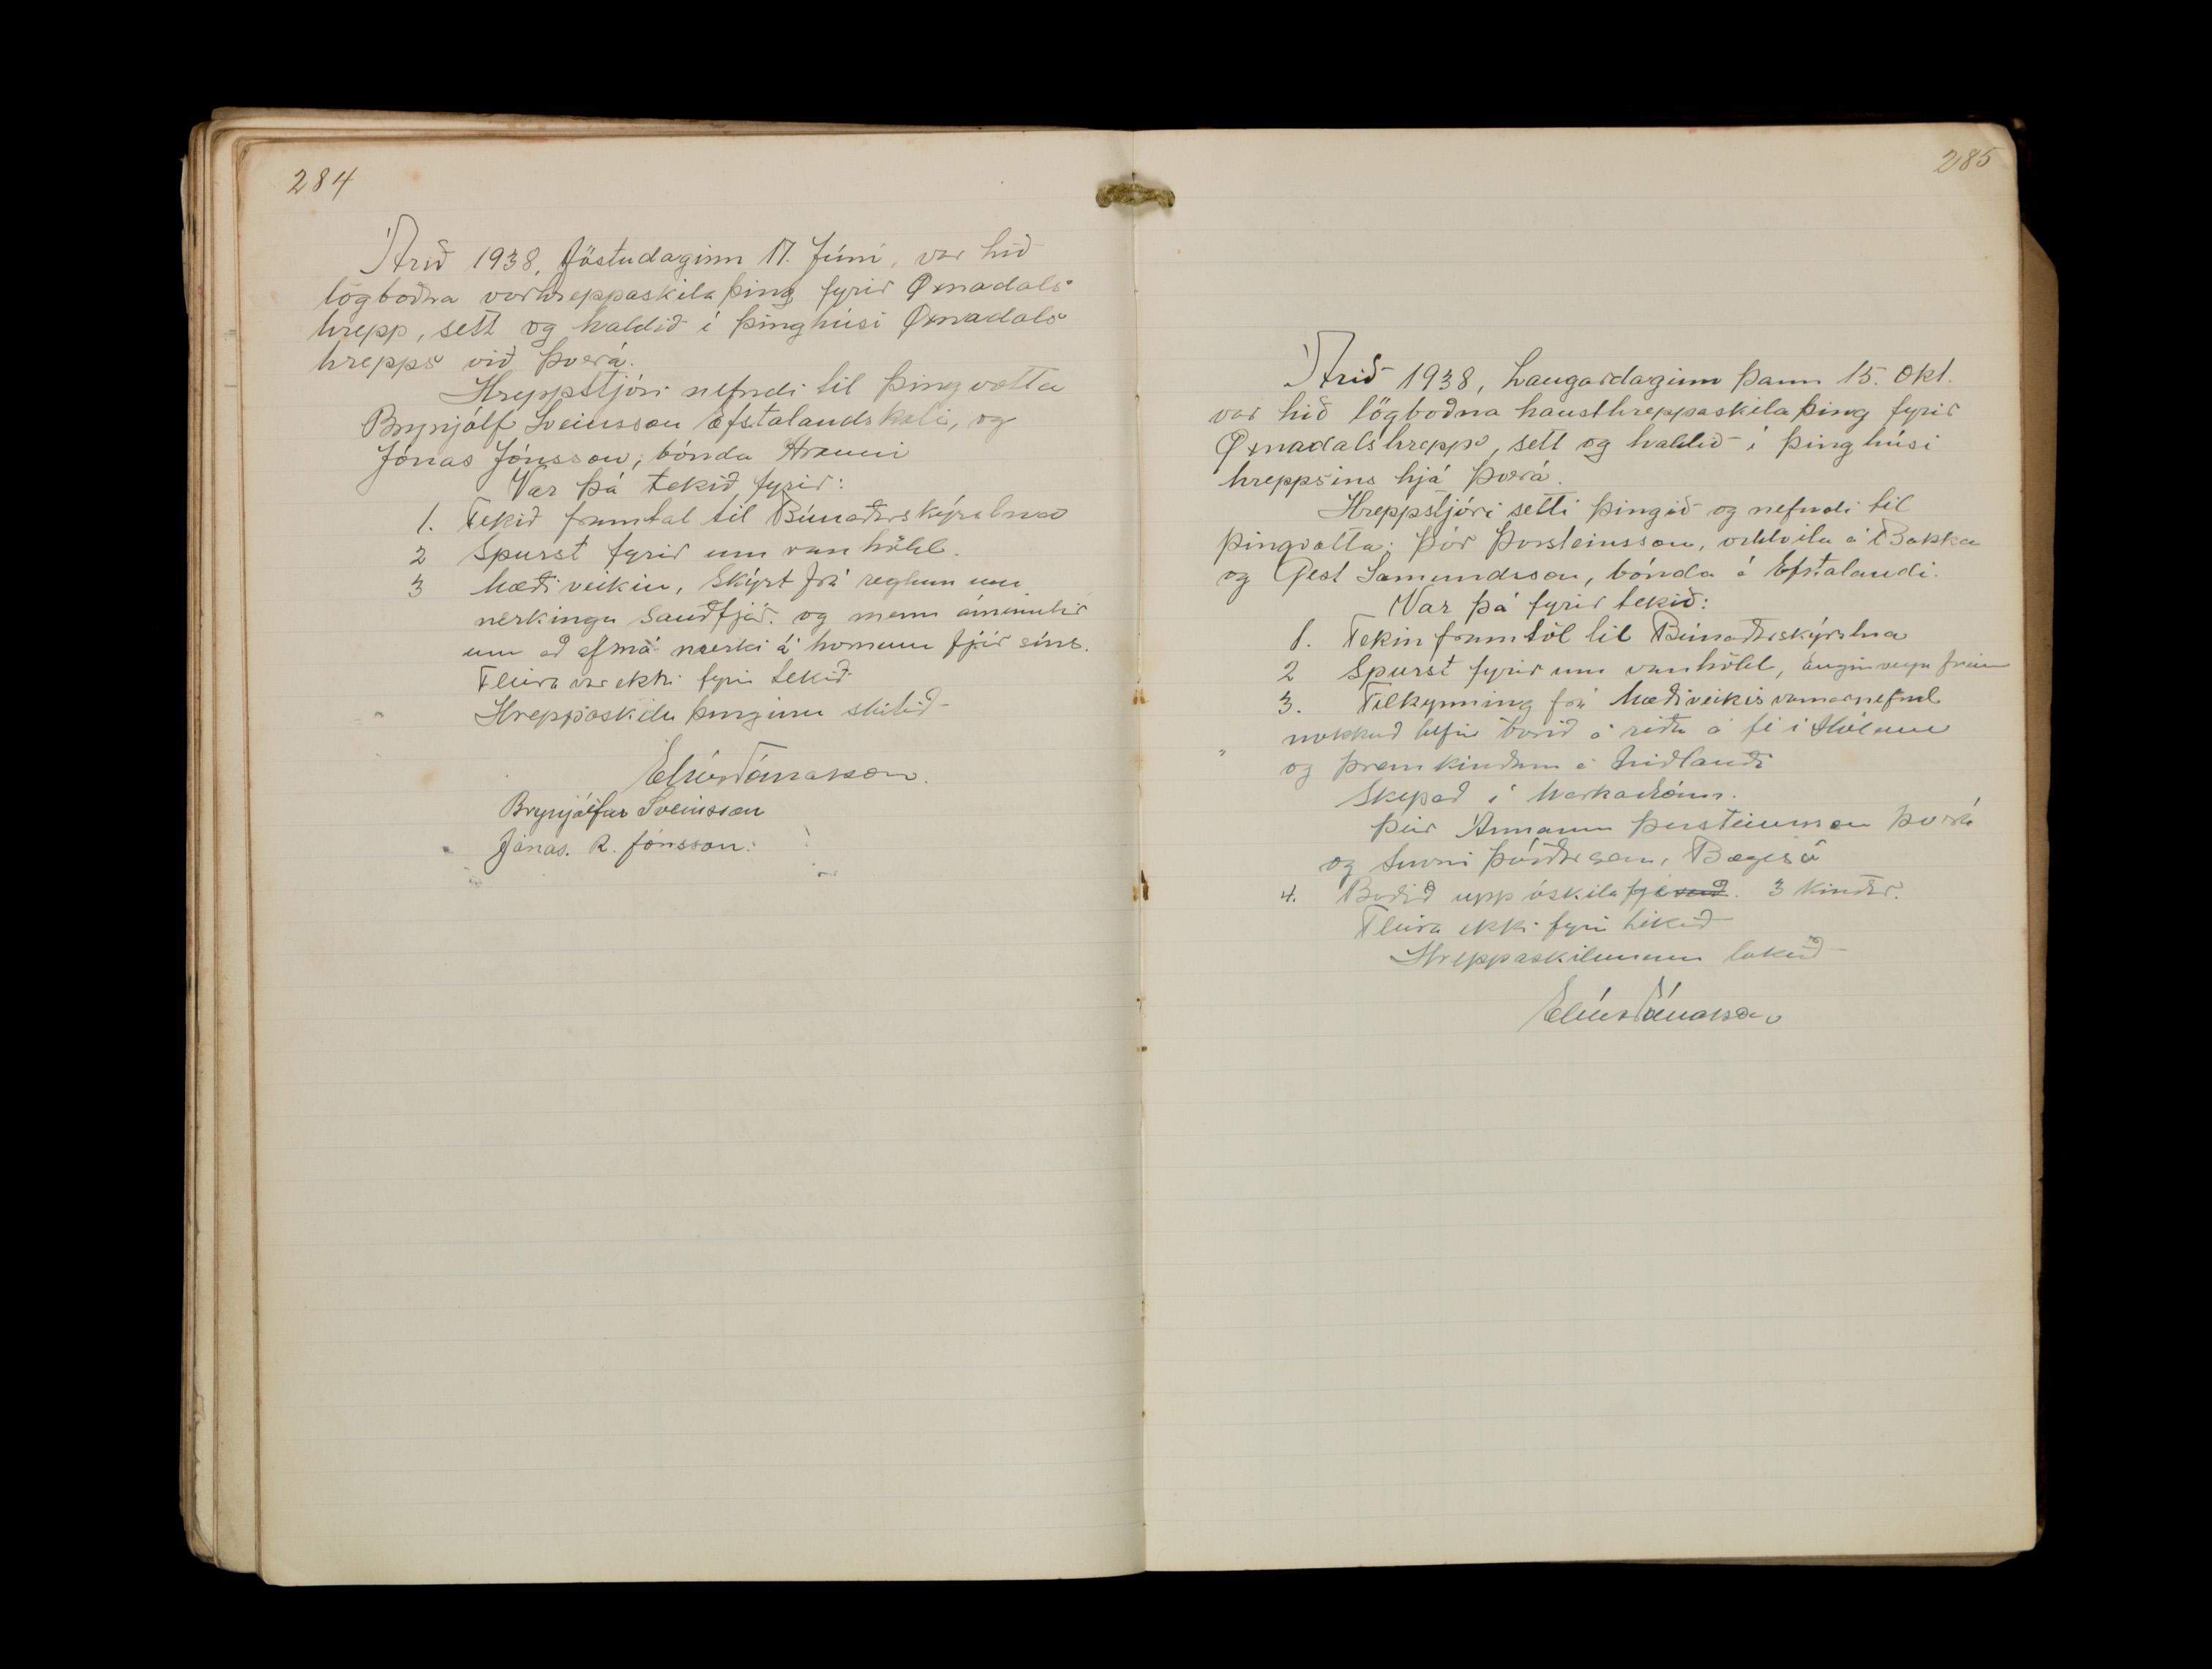 284
Árið 1938, föstudaginn 17. Júní, var hið
lögboðna vorhreppaskilaþing fyrir Øxnadals
hrepp, sett og haldið í þinghúsi Øxnadals
hrepps við Þverá.
Hreppstjóri nefndi til þingvotta
Brynjólf Sveinsson Efstalandskoti, og
Jónas Jónsson, bónda Hrauni
Var þá tekið fyrir:
1. Tekið framtal til Búnaðarskýrslna
2 Spurst fyrir um vanhöld.
3 Mæðiveikin, Skýrt frá reglum um
merkingu Sauðfjár. og menn ámintir
um að afmá merki á hornum fjár síns.
Fleira var ekki fyrir tekið
Hreppaskila þinginu slitið
Elías Tómasson.
Brynjólfur Sveinsson
Jónas. R. Jónsson.
285
Árið 1938, Laugardaginn þann 15. Okt.
var hið lögboðna hausthreppaskilaþing fyrir
Øxnadalshrepp, sett og haldið í þinghúsi
hreppsins hjá Þverá.
Hreppstjóri setti þingið og nefndi til
þingvotta: Þór Þorsteinsson, oddvita á Bakka
og Gest Sæmundsson, bónda á Efstalandi.
Var þá fyrir tekið:
1. Tekin framtöl til Búnaðarskýrslna
2 Spurst fyrir um vanhöld,
3. Tilkynning frá Mæðiveikisvarnarnefnd
nokkuð hefir borið á riðu á fé í Hólum
og þrem kindum á Miðlandi
Skipað í Markadóm.
þeir Ármann Þorsteinsson Þverá
og Snorri Þórðarson, Bægisá
4. Boðið upp óskila fjé 3 kindur.
Fleira ekki fyrir tekið
Hreppaskilunum lokið
Elías Tómasson